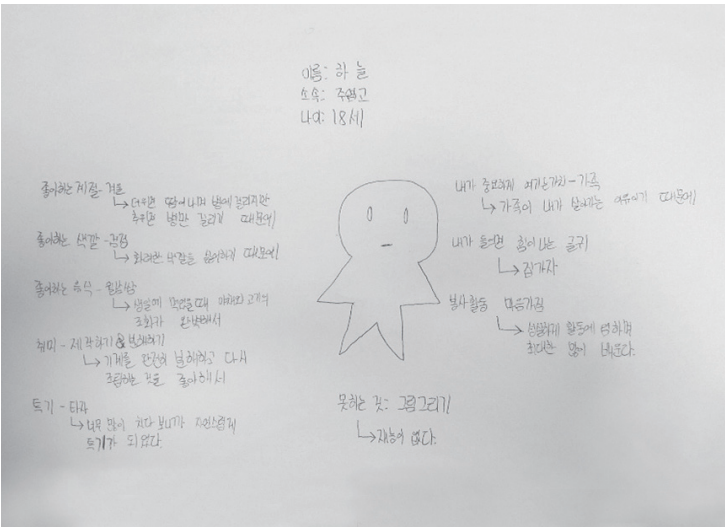 이름: 하늘
소속: 주엽고
나이: 18세
좋아하는 계절 - 겨울
↳ 더우면 땀이 나며 병에 걸리지만
추우면 병만 걸리기 때문에
좋아하는 색깔 - 검정
↳ 화려한 색깔을 싫어하기 때문에
좋아하는 음식 - 월남쌈
↳ 먹었을때 야채와 고기의
조화가 완벽해서
취미 - 제작하기 & 분해하기
↳ 기계를 완전히 분해하고 다시
조립하는 것을 좋아해서
특기 - 타자
↳ 너무 많이 치다 보니까 자연스럽게
특기가 되었다.
내가 중요하게 여기는 가치 - 가족
↳ 가족이 내가 살아가는 이유이기 때문에
내가 들으면 힘이 나는 글귀
↳ 집가자
봉사활동 마음가짐
↳ 성실하게 활동에 임하며
최대한 많이 배운다.
못하는 것: 그림그리기
↳ 재능이 없다.